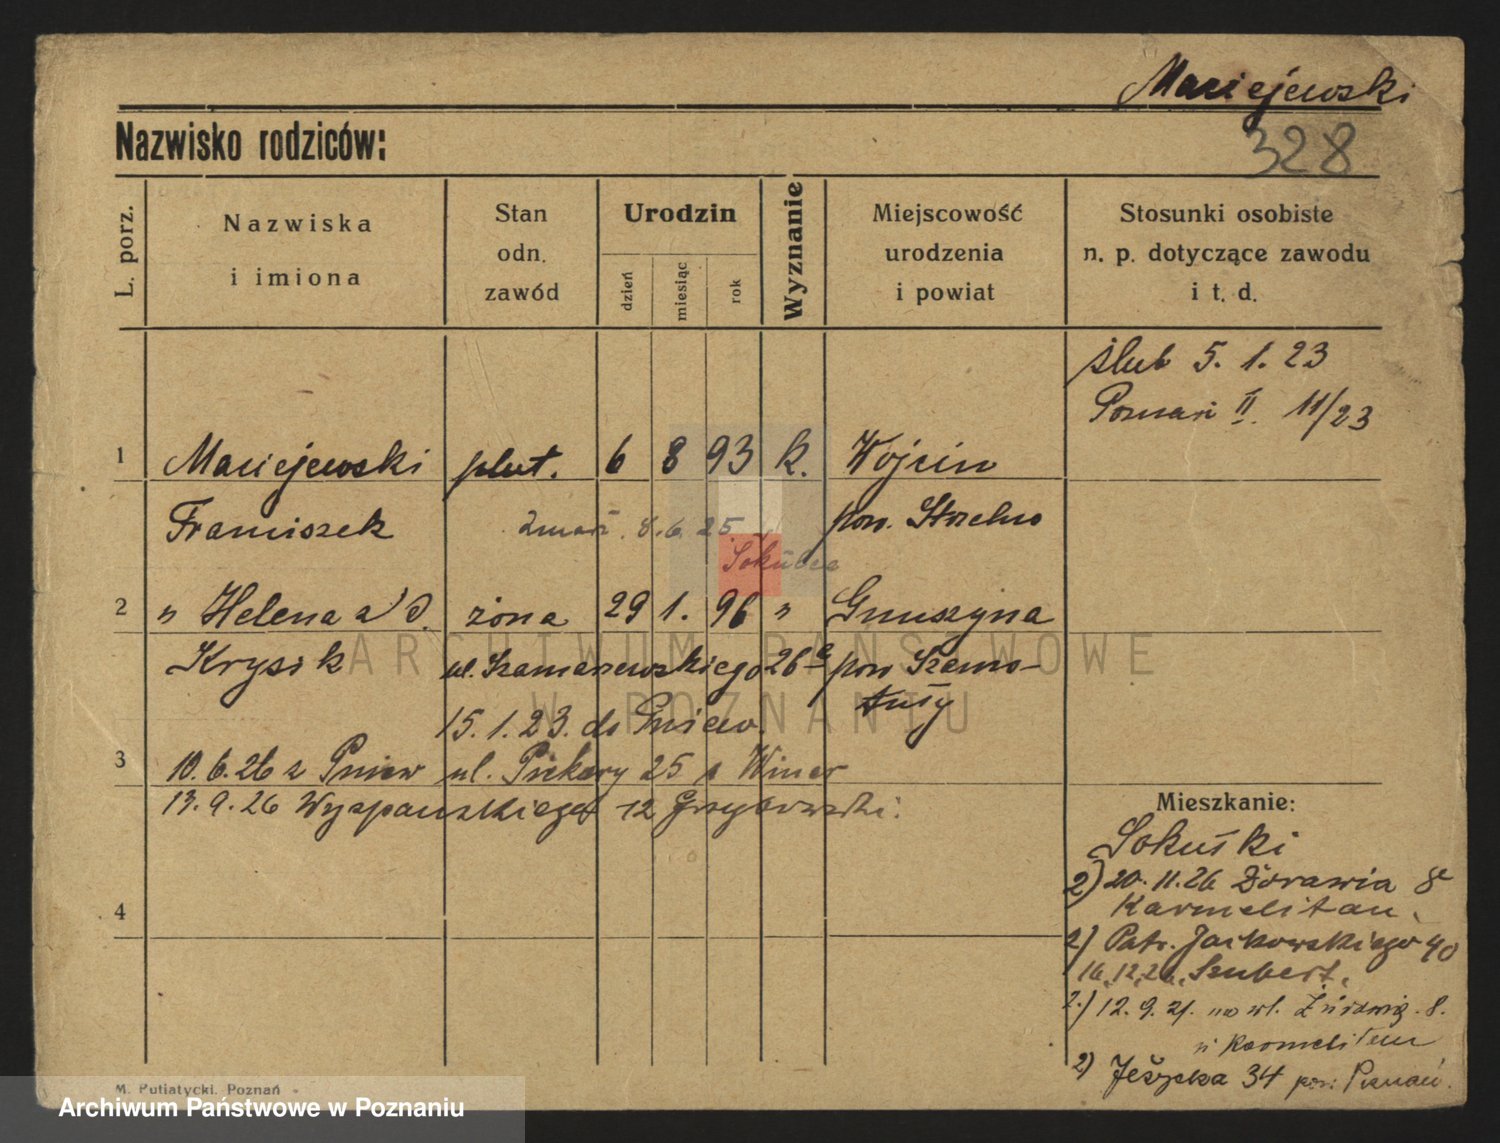 Maciejewski
Nazwisko rodziców:
328
L. porz.
Nazwiska
i imiona
Stan
odn.
zawód
Urodzin
dzień
miesiąc
rok
Wyznanie
Miejscowość
urodzenia
i powiat
Stosunki osobiste
n. p. dotyczące zawodu
i t. d.
ślub 5. 1. 23
Poznań II. 11/23
1 Maciejewski plut. 6 8 93 k. Wójcin
Franciszek pow. Strzelno
zmarł 8.6.25
2 " Helena z d. żona 29 1. 96 "
Krysik ul. Szamarzewskiego 26a pow Szamo-
tuły
ARCHIWUM PAŃSTWOWE
W POZNANIU
15. 1. 23. do Pniew.
3 10.6.26 z Pniew ul. Piekary 25
13.9.26 Wyspiańskiego 12
4
Mieszkanie:
2) 20.11.26 8
Karmelitan.
2) Patr. Jackowskiego 40
16.12.26. Szubert.
2.) 12.9. na ul. 8.
2) 34 pow. Poznań.
M. Putiatycki, Poznań
Archiwum Państwowe w Poznaniu